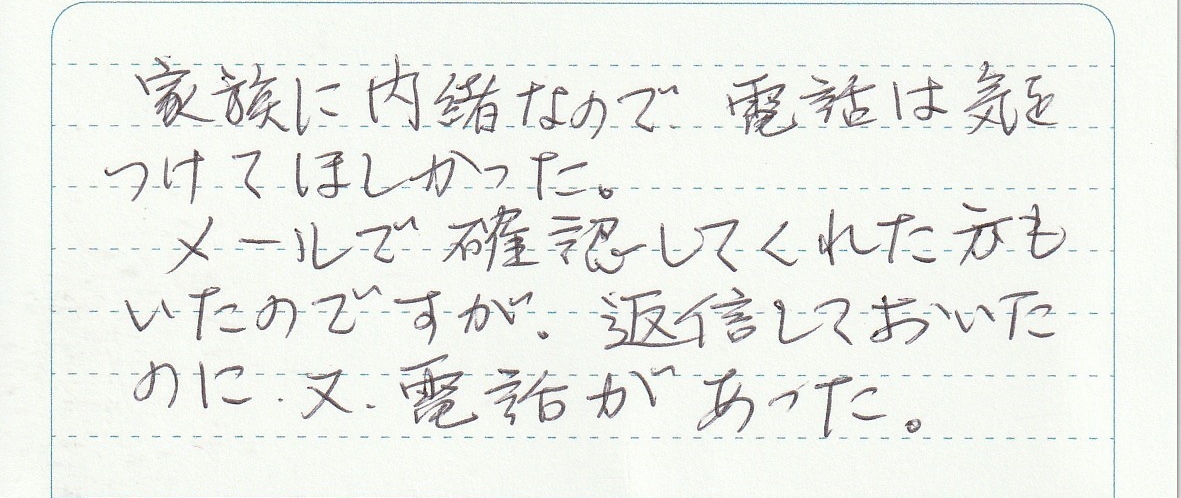 家族に内緒なので、電話は気を
つけてほしかった。
メールで確認してくれた方も
いたのですが、返信しておいた
のに、又、電話があった。